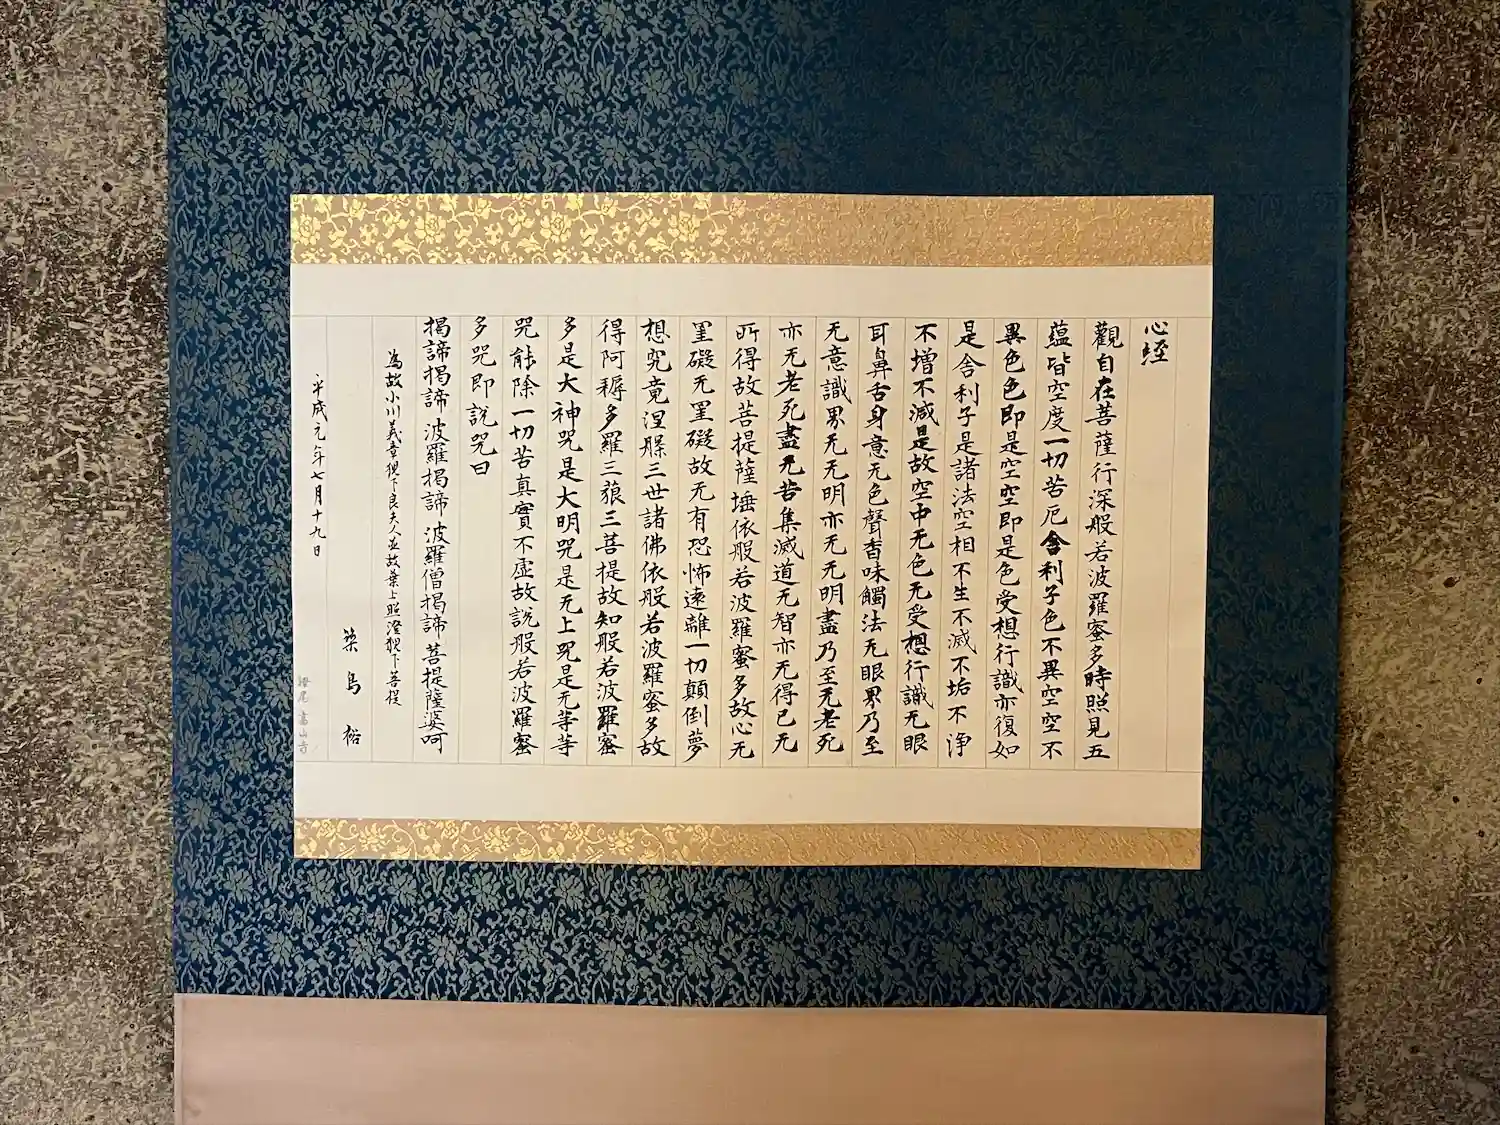 心経
觀自在菩薩行深般若波羅蜜多時照見五
蘊皆空度一切苦厄舎利子色不異空空不
異色色即是空空即是色受想行識亦復如
是舎利子是諸法空相不生不滅不垢不浄
不增不滅是故空中无色无受想行識无眼
耳鼻舌身意无色聲香味觸法无眼界乃至
无意識界无无明亦无无明盡乃至无老死
亦无老死盡无苦集滅道无智亦无得已无
所得故菩提薩埵依般若波羅蜜多故心无
罣礙无罣礙故无有恐怖遠離一切顛倒夢
想究竟涅槃三世諸佛依般若波羅蜜多故
得阿耨多羅三藐三菩提故知般若波羅蜜
多是大神咒是大明咒是无上咒是无等等
咒能除一切苦真實不虛故説般若波羅蜜
多咒即説咒曰
揭諦揭諦 波羅揭諦 波羅僧揭諦 菩提薩婆呵
為故小川義章猊下良夫人並故葉上照澄猊下菩提
築島裕
平成元年七月十九日
栂尾 高山寺